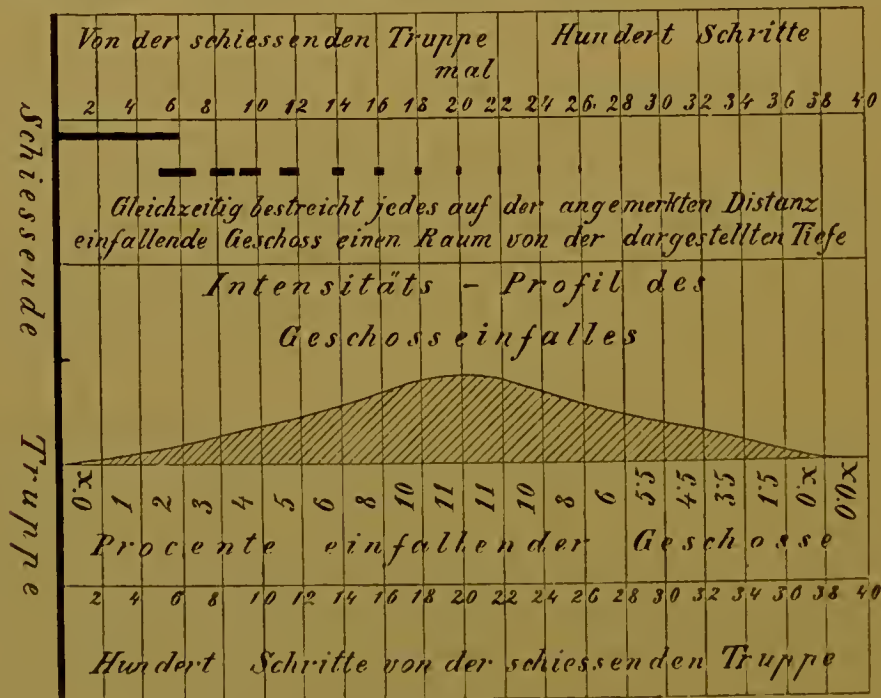 Von der schiessenden Truppe Hundert Schritte
mal
2 4 6 8 10 12 14 16 18 20 22 24 26. 28 30 32 34 36 38 40
Gleichzeitig bestreicht jedes auf der angemerkten Distanz
einfallende Geschoss einen Raum von der dargestellten Tiefe
Intensitäts - Profil des
Geschosseinfalles
0.x 1 2 3 4 5 6 8 10 11 11 10 8 6 5.5 4.5 3.5 1.5 0.x 0.0x
Procente einfallender Geschosse
2 4 6 8 10 12 14 16 18 20 22 24 26 28 30 32 34 36 38 40
Hundert Schritte von der schiessenden Truppe
Schiessende Truppe